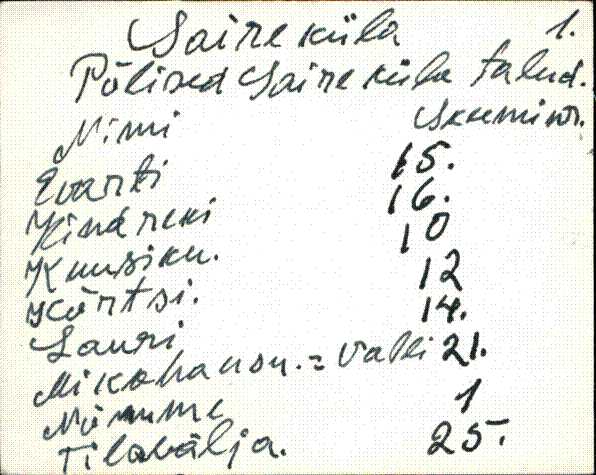 Saire küla 1.
Põlised Saire küla talud.
Nimi Skeemi nr.
Evarti 15.
Hindreki 16.
Kuusiku. 10
Kõrtsi. 12
Lauri 14.
Mikohanson. = Valli 21.
Nõmme 1
Tilavälja. 25.